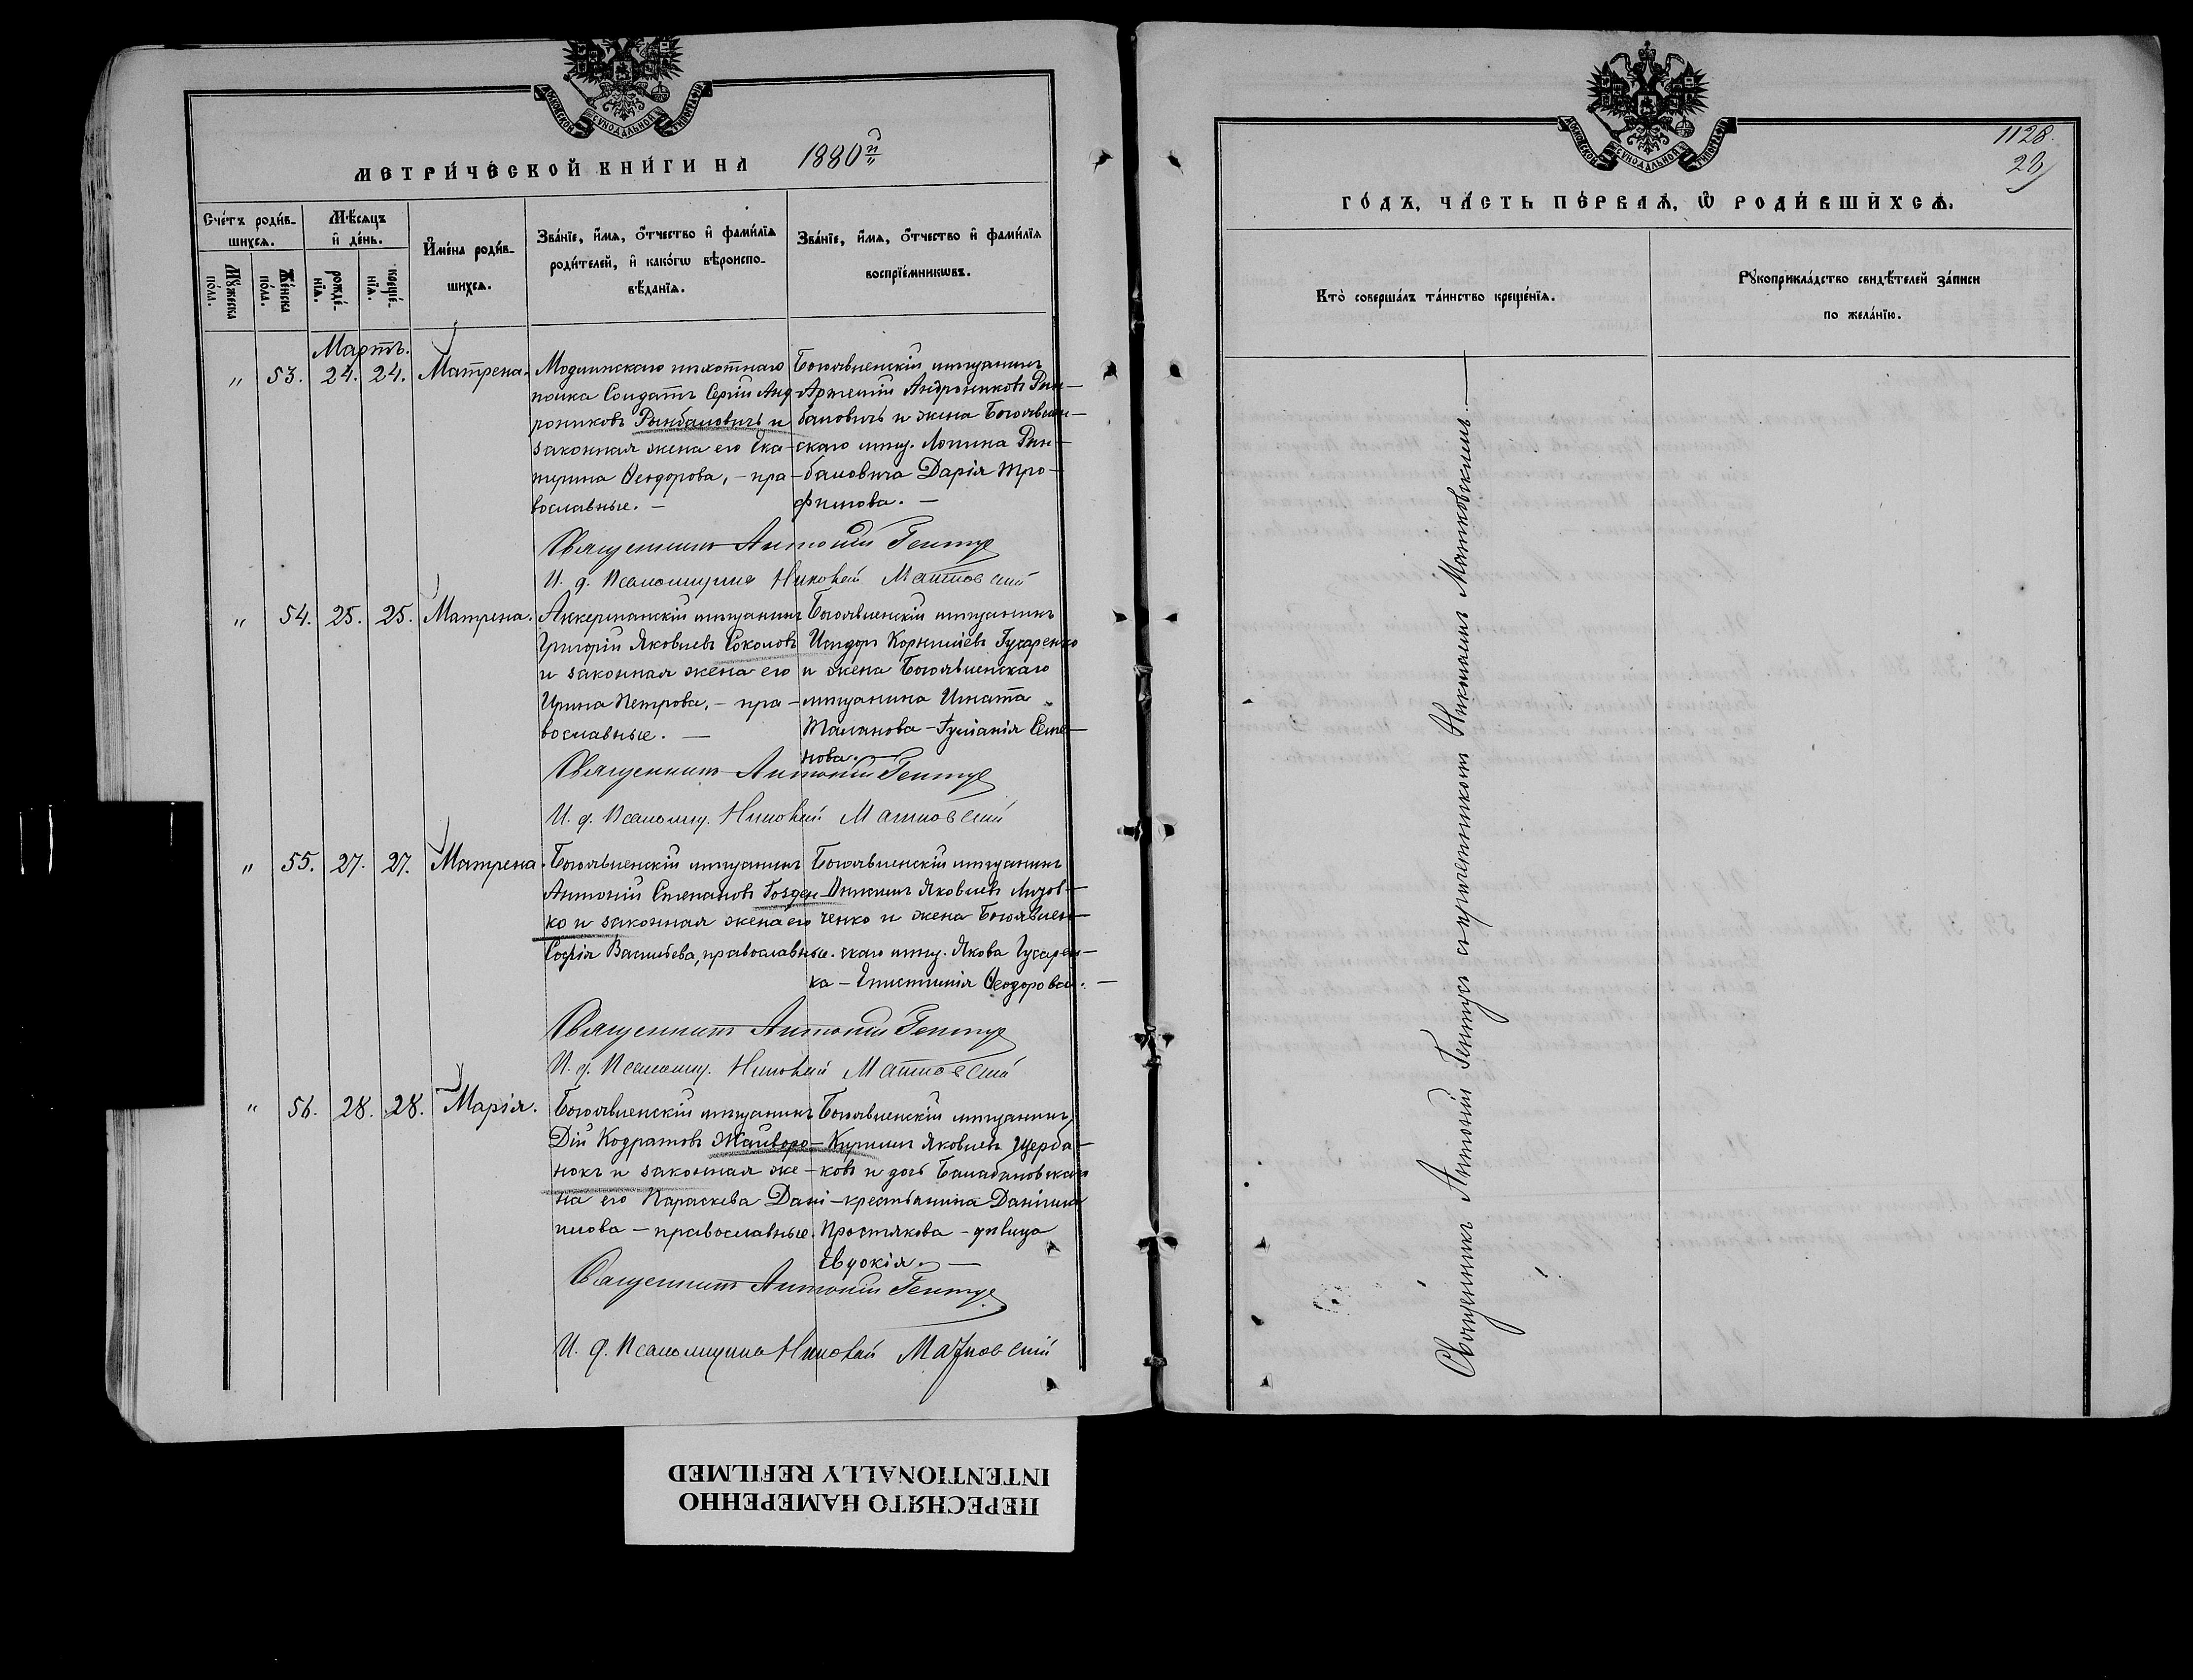 МОСКОВСКОЙ СѴНОДАЛЬНОЙ ТИПОГРАФІИ
МЕТРИ́ЧЕСКОЙ КНИ́ГИ НА 1880й
Сче́тъ роди́в-
шихсѧ.
Мѣ́сѧцъ
и҆ де́нь.
И҆мена̀ роди́в-
шихсѧ.
Зва́нїе, и҆́мѧ, ѻ҆́тчество и҆ фами́лїѧ
роди́телей, и҆ како́гѡ вѣроиспо-
вѣ́данїѧ.
Зва́нїе, и҆́мѧ, ѻ҆́тчество и҆ фами́лїѧ
воспрїе́мникѡвъ.
Мꙋ́жеска
по́ла.
Же́нска
по́ла.
рожде́-
нїѧ.
креще́-
нїѧ.
Мартъ.
" 53. 24. 24. Матрена.
Модлинскаго пѣхотнаго
полка Солдатъ Сергій Анд-
рониковъ Рындаловичъ и
законная жена его Ека-
терина Ѳеодорова, - пра-
вославные. -
Богоявленскій мѣщанинъ
Артемій Андрониковъ Рын-
даловичъ и жена Богоявлен-
скаго мѣщ. Логина Рын-
даловича Дарія Тро-
фимова. -
Священникъ Антоній Гентуг
И. д. Псаломщика Николай Матковскій
" 54. 25. 25. Матрена.
Аккерманскій мѣщанинъ
Григорій Яковлевъ Соколовъ
и законная жена его
Ирина Петрова, - пра-
вославные. -
Богоявленскій мѣщанинъ
Исидоръ Корниліевъ Гусаренко
и жена Богоявленскаго
мѣщанина Игната
Таланова - Іуліанія Семе-
нова.
Священникъ Антоній Гентуг
И. д. Псаломщ. Николай Матковскій
" 55. 27. 27. Матрена.
Богоявленскій мѣщанинъ
Антоній Степановъ Гозден-
ко и законная жена его
Софія Васильева, православные.
Богоявленскій мѣщанинъ
Яковлевъ Лизов-
ченко и жена Богоявлен-
скаго мѣщ. Якова Гусарен-
ка - Епистимія Ѳеодорова. -
Священникъ Антоній Гентуг
И. д. Псаломщ. Николай Матковскій
" 56. 28. 28. Марія.
Богоявленскій мѣщанинъ
Дій Кодратовъ Жайворо-
нокъ и законная же-
на его Параскева Дані-
илова - православные.
Богоявленскій мѣщанинъ,
Кириллъ Яковлевъ Щерба-
ковъ и дочь Балабановскаго
крестьянина Даніила
Простякова - дѣвица
Евдокія. -
Священникъ Антоній Гентуг
И. д. Псаломщика Николай Матковскій
МОСКОВСКОЙ СѴНОДАЛЬНОЙ ТИПОГРАФІИ
1128.
23
ГО́ДЪ, ЧА́СТЬ ПЕ́РВАѦ, Ѡ҆ РОДИ́ВШИХСѦ.
Кто̀ соверша́лъ та́инство креще́нїѧ.
Рꙋкоприкла́дство свидѣ́телей за́писи
по жела́нїю.
Священникъ Антоній Гентугъ съ причетникомъ Николаемъ Матковскимъ.
ПЕРЕСНЯТО НАМЕРЕННО
INTENTIONALLY REFILMED